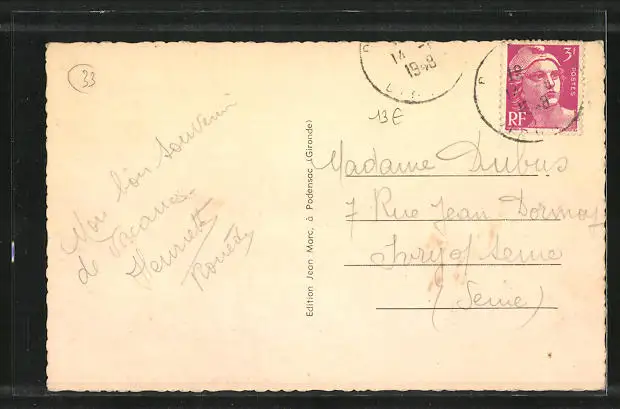 33
14
1948
13€
3F
POSTES
RF
Mon bon souvenir
de Vacances
Henriette
Edition Jean Marc, à Podensac (Gironde)
Madame Dubus
7 Rue Jean Dormoy
Ivry s/ Seine
(Seine)